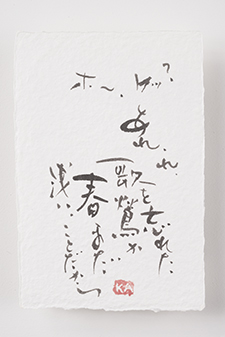 ホ〜、ケッ?
あれ、れ、
歌を忘れた
鶯か
春まだ
浅いことだから
KA